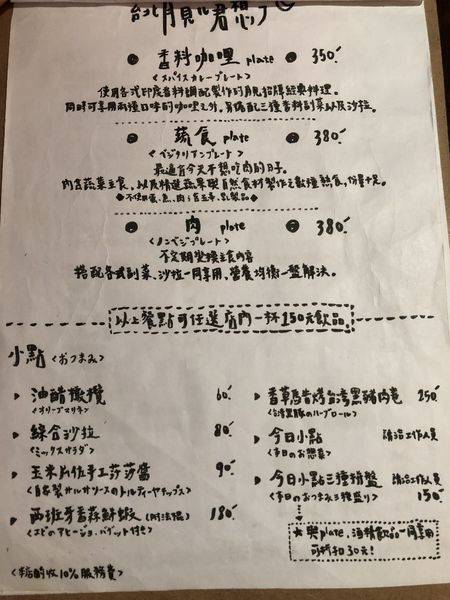 香料咖哩 plate 350.
<スパイスカレープレート>
使用各式印度香料調配製作的月見招牌經典料理。
同時可享用兩種口味的咖哩之外，另備配三種香料副菜以及沙拉。
蔬食 plate 380.
<ベジタリアンプレート>
來過省今天不想吃肉的日子。
內含蔬菜主食，以及精選蔬果與自然食材製作之數種熱食，份量十足。
肉 plate 380.
<ノンベジプレート>
不定期變換主食內容
搭配各式副菜、沙拉一同享用，營養均衡一盤解決。
以上餐點可任選店內一杯150元飲品。
小點 <おつまみ>
油醋橄欖 60.
<オリーブマリネ>
綜合沙拉 80.
<ミックスサラダ>
玉米片佐手工莎莎醬 90.
<自家製サルサソースのトルティーヤチップス>
西班牙香蒜鮮蝦 (附法棍) 180.
<エビのアヒージョ、バゲット付き>
香草馬告烤台灣黑豬肉卷 250.
<台湾黒豚のハーブロール>
今日小點 請洽工作人員
<本日のお惣菜>
今日小點三種拼盤 請洽工作人員
<本日のおつまみ三種盛り> 150.
★與plate、酒精飲品一同享用
可折扣30元！
<本店酌收10%服務費>